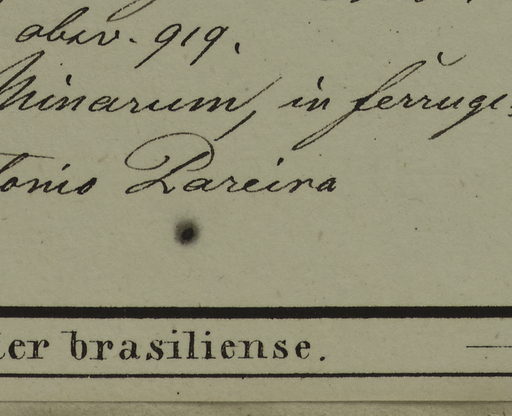 obsv. 919.
Minarum, in ferrugi
tonio Pareira
ter brasiliense.